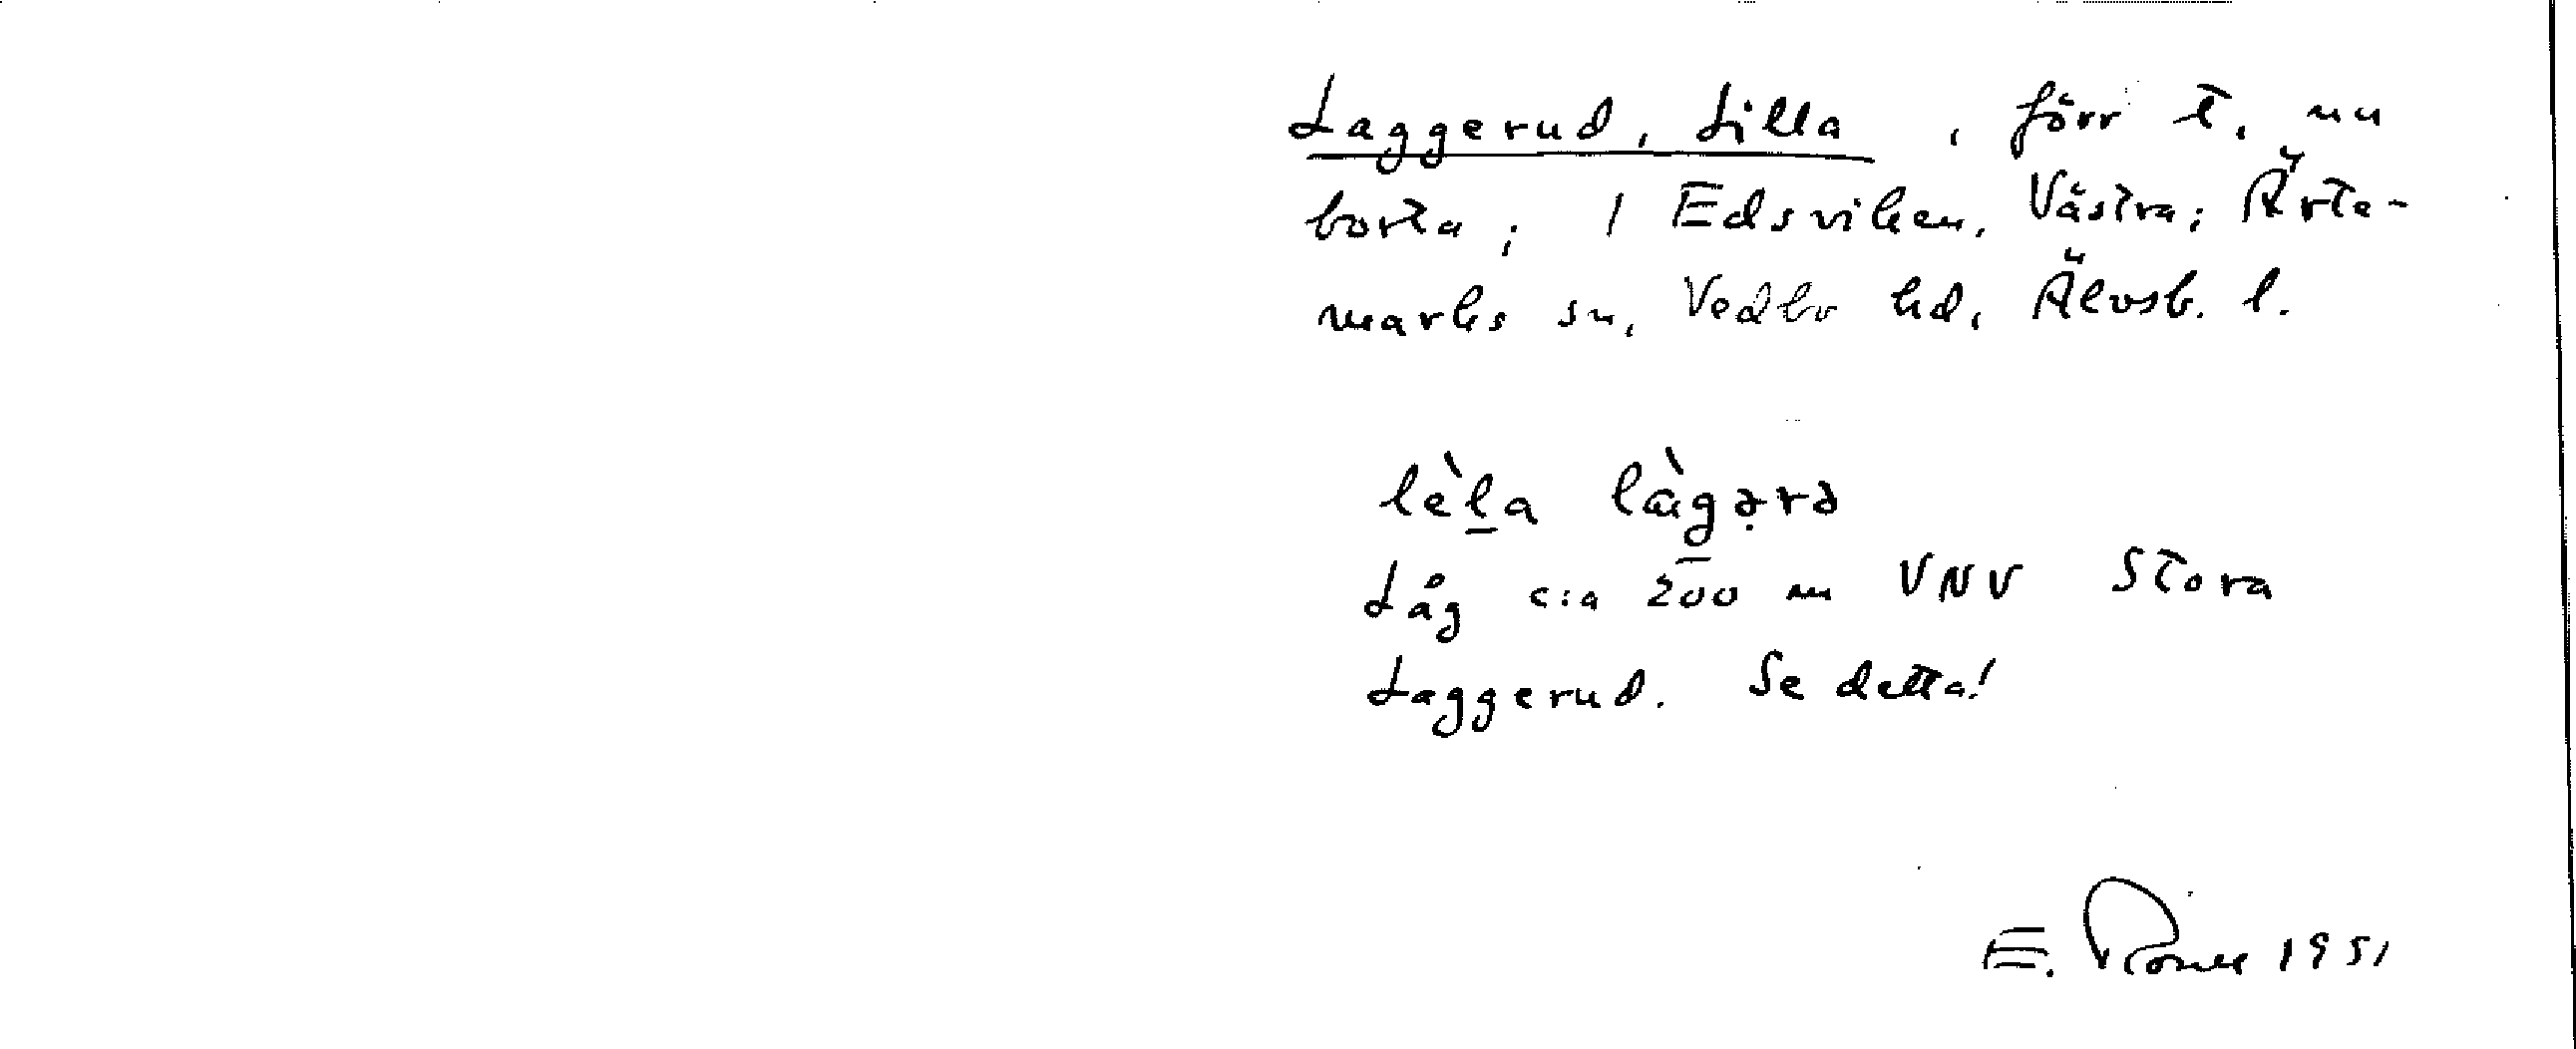 Laggerud, Lilla, förr t. nu
borta; 1 Edsviken, Västra; Ärte-
marks sn, Vedbo hd, Älvsb. l.
lèḻa làg̱ərə
Låg c:a 200 m VNV Stora
Laggerud. Se detta!
E. 1951